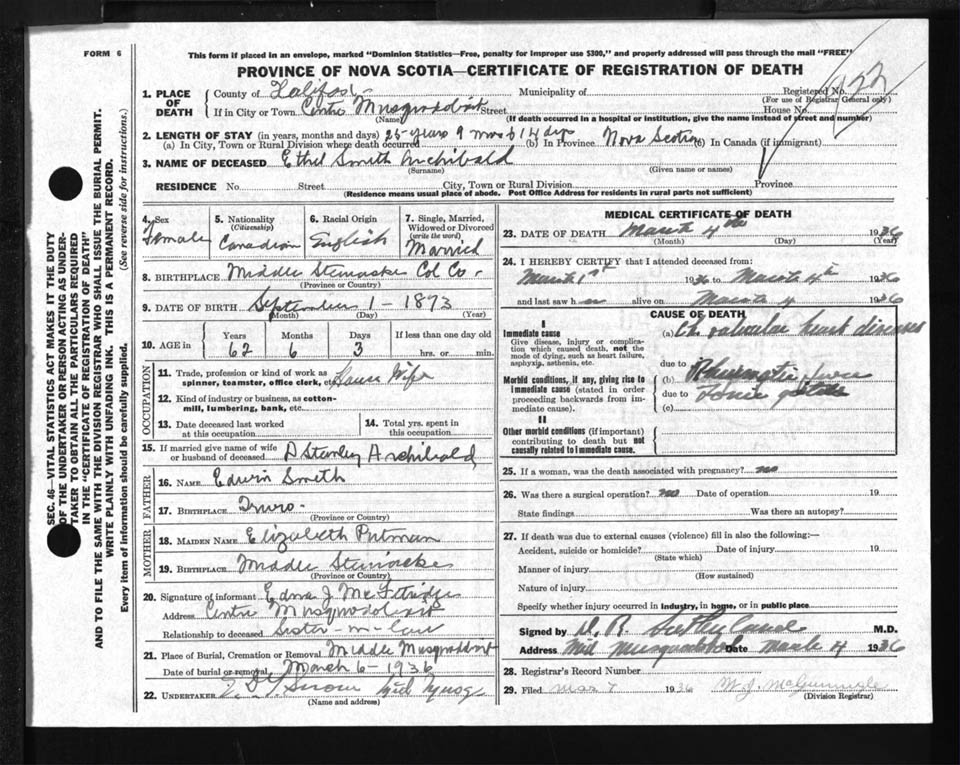 FORM 6
This form if placed in an envelope, marked "Dominion Statistics—Free, penalty for improper use $300," and properly addressed will pass through the mail "FREE"
PROVINCE OF NOVA SCOTIA—CERTIFICATE OF REGISTRATION OF DEATH
SEC. 46—VITAL STATISTICS ACT MAKES IT THE DUTY
OF THE UNDERTAKER OR PERSON ACTING AS UNDER-
TAKER TO OBTAIN ALL THE PARTICULARS REQUIRED
IN THE "CERTIFICATE OF REGISTRATION OF DEATH"
AND TO FILE THE SAME WITH THE DIVISION REGISTRAR WHO SHALL ISSUE THE BURIAL PERMIT.
WRITE PLAINLY WITH UNFADING INK. THIS IS A PERMANENT RECORD.
Every item of information should be carefully supplied. (See reverse side for instructions.)
1. PLACE OF DEATH
County of Halifax Municipality of Registered No. 922
(For use of Registrar General only)
If in City or Town Centre Musquodoboit Street House No.
(Name) (If death occurred in a hospital or institution, give the name instead of street and number)
2. LENGTH OF STAY (in years, months and days) 25 years 9 mos 14 dys
(a) In City, Town or Rural Division where death occurred (b) In Province Nova Scotia (c) In Canada (if immigrant)
3. NAME OF DECEASED Ethel Smith Archibald
(Surname) (Given name or names)
RESIDENCE No. Street City, Town or Rural Division Province
(Residence means usual place of abode. Post Office Address for residents in rural parts not sufficient)
4. Sex Female
5. Nationality (Citizenship) Canadian
6. Racial Origin English
7. Single, Married, Widowed or Divorced (write the word) Married
8. BIRTHPLACE Middle Stewiacke Col Co.
(Province or Country)
9. DATE OF BIRTH September 1 - 1873
(Month) (Day) (Year)
10. AGE in Years 62 Months 6 Days 3 If less than one day old hrs. or min.
OCCUPATION
11. Trade, profession or kind of work as spinner, teamster, office clerk, etc. House Wife
12. Kind of industry or business, as cotton-mill, lumbering, bank, etc.
13. Date deceased last worked at this occupation
14. Total yrs. spent in this occupation
15. If married give name of wife or husband of deceased D Stanley Archibald
FATHER
16. NAME Edwin Smith
17. BIRTHPLACE Truro -
(Province or Country)
MOTHER
18. MAIDEN NAME Elizabeth Putman
19. BIRTHPLACE Middle Stewiacke
(Province or Country)
20. Signature of informant Edna J. McFetridge
Address Centre Musquodoboit
Relationship to deceased Sister-in-law
21. Place of Burial, Cremation or Removal Middle Musquodoboit
Date of burial or removal March 6 - 1936
22. UNDERTAKER Mid Musq
(Name and address)
MEDICAL CERTIFICATE OF DEATH
23. DATE OF DEATH March 4th 1936
(Month) (Day) (Year)
24. I HEREBY CERTIFY that I attended deceased from:
March 1st 1936 to March 4th 1936
and last saw her alive on March 4 1936
CAUSE OF DEATH
I
Immediate cause
Give disease, injury or complication which caused death, not the mode of dying, such as heart failure, asphyxia, asthenia, etc.
(a) Ch valvular heart disease
due to
Morbid conditions, if any, giving rise to immediate cause (stated in order proceeding backwards from immediate cause).
(b) Rheumatic
due to
(c)
II
Other morbid conditions (if important) contributing to death but not causally related to immediate cause.
25. If a woman, was the death associated with pregnancy? no
26. Was there a surgical operation? no Date of operation 19
State findings Was there an autopsy?
27. If death was due to external causes (violence) fill in also the following:—
Accident, suicide or homicide? Date of injury 19
(State which)
Manner of injury
(How sustained)
Nature of injury
Specify whether injury occurred in industry, in home, or in public place
Signed by D. R. Sutherland M.D.
Address Mid Musquodoboit Date March 4 1936
28. Registrar's Record Number
29. Filed Mar 7 1936
(Division Registrar)